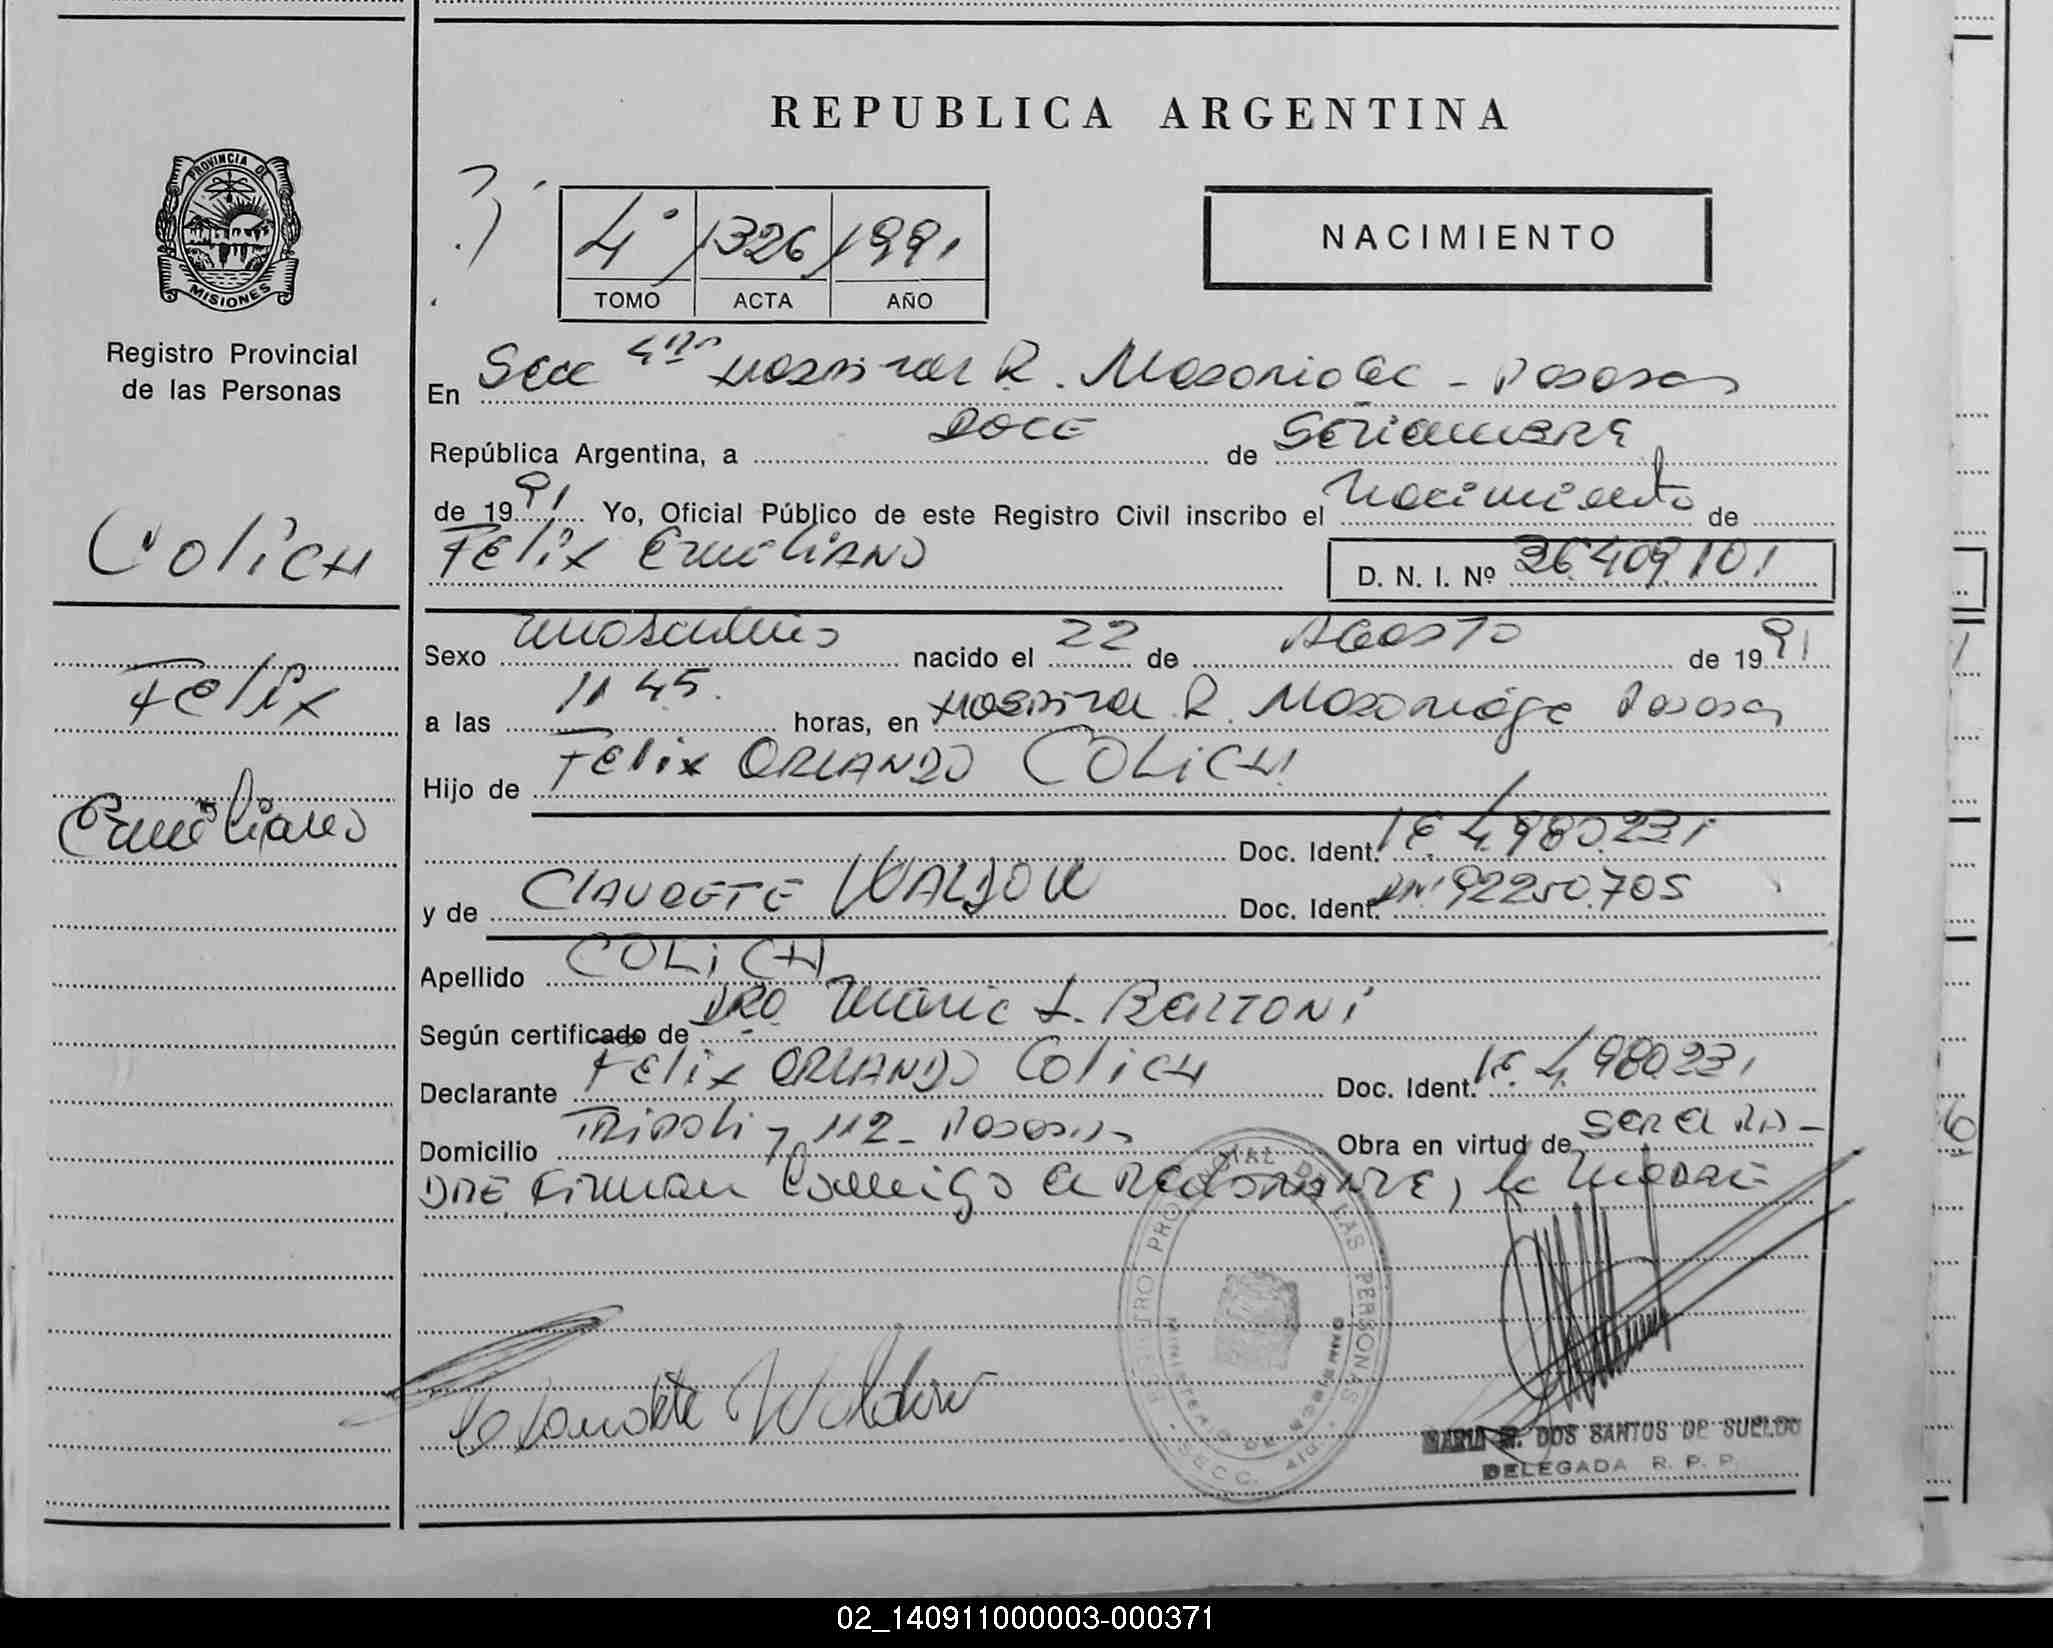 REPUBLICA ARGENTINA
PROVINCIA DE
MISIONES
Registro Provincial
de las Personas
4° 1326 1991
TOMO ACTA AÑO
NACIMIENTO
En Secc 4ta Hospital R. Madariaga - Posadas
República Argentina, a DOCE de SETIEMBRE
de 1991 Yo, Oficial Público de este Registro Civil inscribo el Nacimiento de
Felix EmeliANO
D. N. I. Nº 36.409.101
COLICH
Felix
Emeliano
Sexo masculino nacido el 22 de Agosto de 1991
a las 11 45. horas, en Hospital R. Madariaga Posadas
Hijo de Felix ORLANDO COLICH
Doc. Ident. LE 4.980.231
y de CLAUDETE WALDOW Doc. Ident. DNI 92250.705
Apellido COLICH
Según certificado de DRA L. BERTONI
Declarante Felix ORLANDO COLICH Doc. Ident. LE. 4.980.231
Domicilio TRIPOLI y 112 - Posadas Obra en virtud de SER EL PA-
DRE, Firman Conmigo el DECLARANTE, la MADRE
Claudete Waldow
REGISTRO PROVINCIAL DE LAS PERSONAS
MINISTERIO DE GOBIERNO
SECC. 4ta
MARIA DOS SANTOS DE SUELDO
DELEGADA R. P. P.
02_140911000003-000371